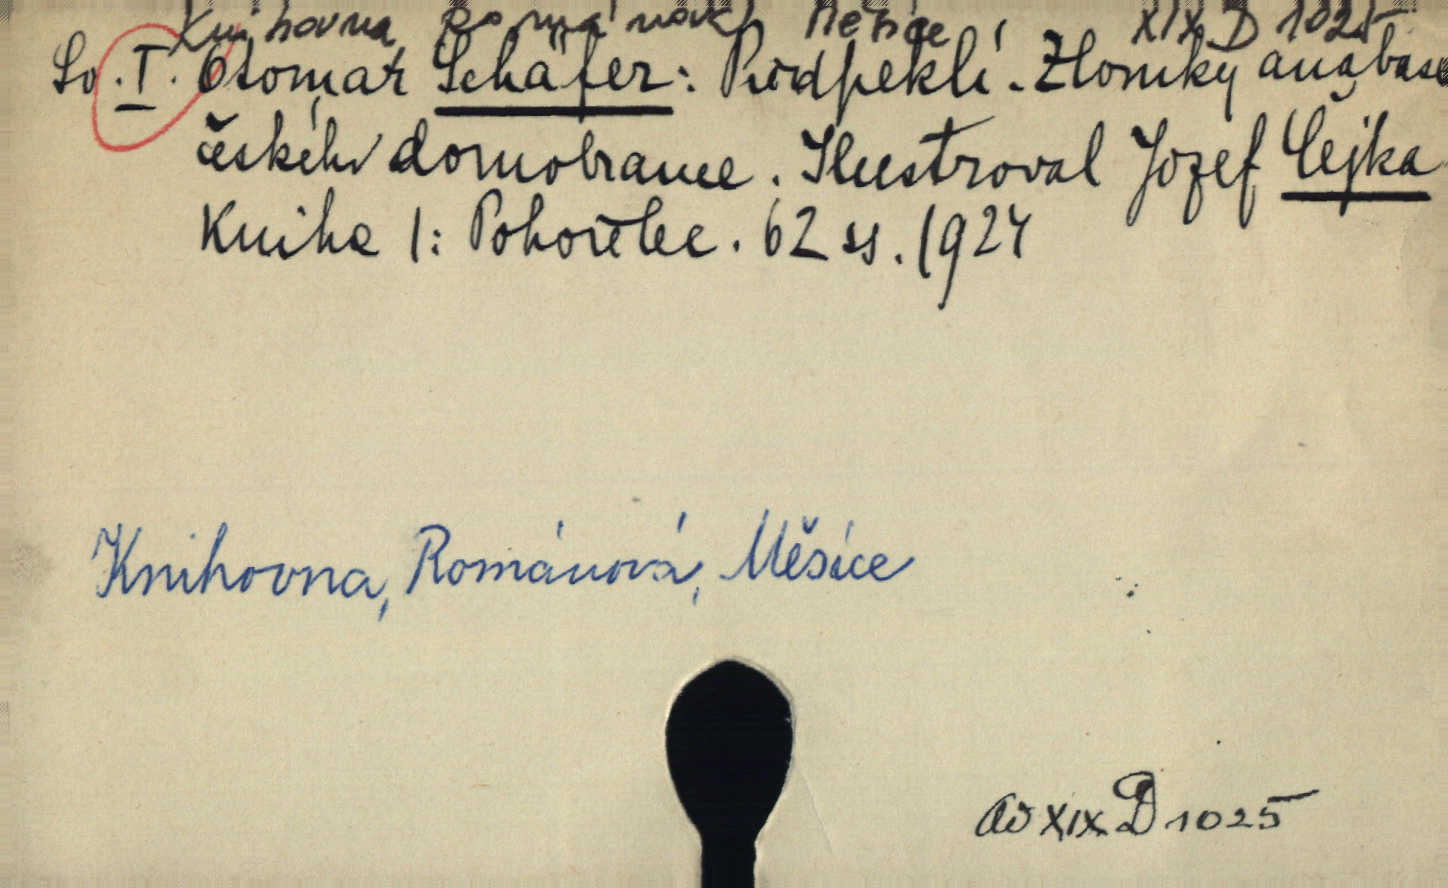 Knihovna, Románová, Měsíce XIX D 1025
Sv. I. Otomar Schäfer: Předpeklí. Zlomky anabase
českého domobrance. Ilustroval Jozef Čejka
Kniha 1: Pohořelec. 62 ss. 1924
Knihovna, Románová, Měsíce
XIX D 1025